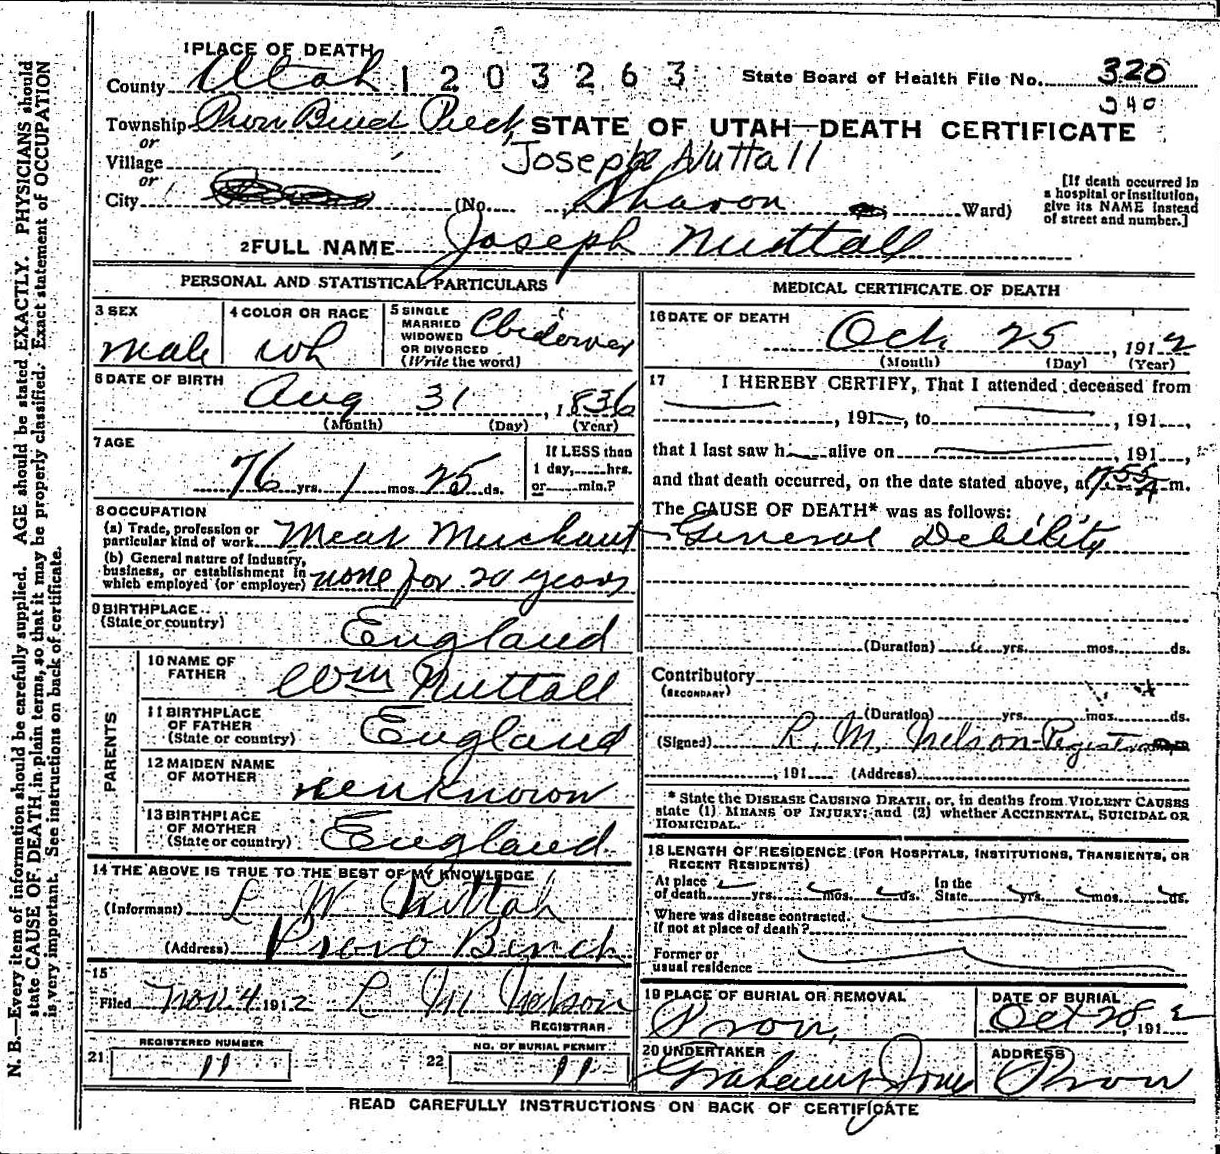 1 PLACE OF DEATH
County Utah 1203263 State Board of Health File No. 320
340
Township Provo Bench Prect. STATE OF UTAH—DEATH CERTIFICATE
or
Village Joseph Nuttall
or
City (No. Sharon Ward)
[If death occurred in
a hospital or institution,
give its NAME instead
of street and number.]
2 FULL NAME Joseph Nuttall
PERSONAL AND STATISTICAL PARTICULARS
3 SEX
male
4 COLOR OR RACE
wh
5 SINGLE
MARRIED
WIDOWED
OR DIVORCED
(Write the word)
Widower
6 DATE OF BIRTH
Aug 31, 1836
(Month) (Day) (Year)
7 AGE
76 yrs. 1 mos. 25 ds.
If LESS than
1 day,......hrs.
or......min.?
8 OCCUPATION
(a) Trade, profession or
particular kind of work Meat Merchant
(b) General nature of industry,
business, or establishment in
which employed (or employer) none for 20 years
9 BIRTHPLACE
(State or country)
England
PARENTS
10 NAME OF
FATHER
Wm Nuttall
11 BIRTHPLACE
OF FATHER
(State or country)
England
12 MAIDEN NAME
OF MOTHER
unknown
13 BIRTHPLACE
OF MOTHER
(State or country)
England
14 THE ABOVE IS TRUE TO THE BEST OF MY KNOWLEDGE
(Informant) L W Nuttall
(Address) Provo Bench
15
Filed Nov 4 1912 R M Nelson
REGISTRAR
21 REGISTERED NUMBER
11
22 NO. OF BURIAL PERMIT
11
MEDICAL CERTIFICATE OF DEATH
16 DATE OF DEATH
Oct 25, 1912
(Month) (Day) (Year)
17 I HEREBY CERTIFY, That I attended deceased from
, 191 , to , 191 ,
that I last saw h alive on , 191 ,
and that death occurred, on the date stated above, at 7.55 A m.
The CAUSE OF DEATH* was as follows:
General Debility
(Duration) yrs. mos. ds.
Contributory
(SECONDARY)
(Duration) yrs. mos. ds.
(Signed) R. M. Nelson Registrar
, 191 (Address)
* State the DISEASE CAUSING DEATH, or, in deaths from VIOLENT CAUSES
state (1) MEANS OF INJURY; and (2) whether ACCIDENTAL, SUICIDAL OR
HOMICIDAL.
18 LENGTH OF RESIDENCE (FOR HOSPITALS, INSTITUTIONS, TRANSIENTS, OR
RECENT RESIDENTS)
At place
of death yrs. mos. ds.
In the
State yrs. mos. ds.
Where was disease contracted
if not at place of death?
Former or
usual residence
19 PLACE OF BURIAL OR REMOVAL
Provo,
DATE OF BURIAL
Oct 28, 1912
20 UNDERTAKER
ADDRESS
Provo
READ CAREFULLY INSTRUCTIONS ON BACK OF CERTIFICATE
N. B.—Every item of information should be carefully supplied. AGE should be stated EXACTLY. PHYSICIANS should
state CAUSE OF DEATH in plain terms, so that it may be properly classified. Exact statement of OCCUPATION
is very important. See instructions on back of certificate.